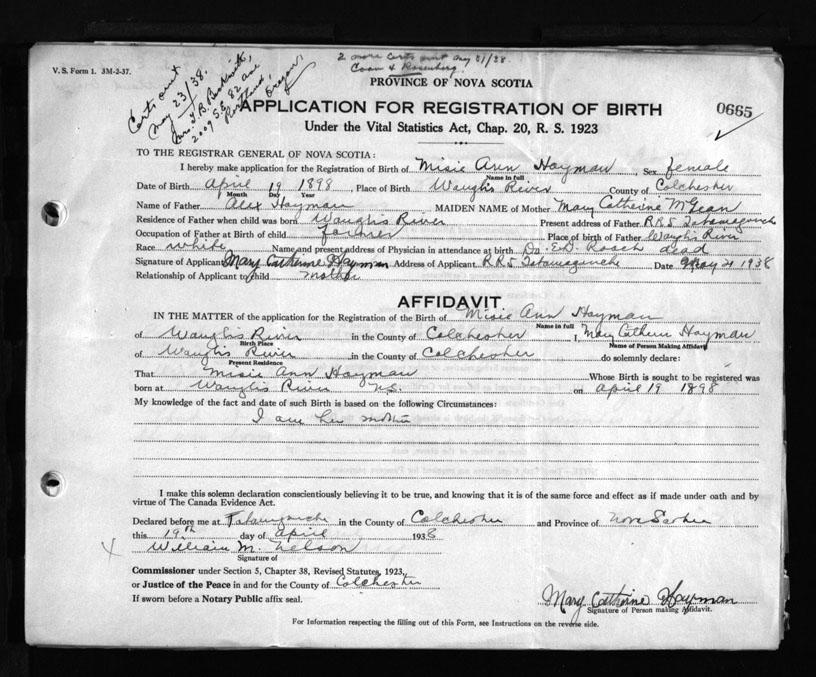 V. S. Form 1. 3M-2-37.
Certs sent
May 23/38.
Mrs. J. B. Beckwith,
2009 S.E. 82 ave
Portland, Oregon.
2 more Certs sent Aug 31/38
Coan & Rosenberg.
PROVINCE OF NOVA SCOTIA
APPLICATION FOR REGISTRATION OF BIRTH
0665
Under the Vital Statistics Act, Chap. 20, R. S. 1923
TO THE REGISTRAR GENERAL OF NOVA SCOTIA:
I hereby make application for the Registration of Birth of Misie Ann Hayman Sex female
Name in full
Date of Birth April 19 1898, Place of Birth Waughs River County of Colchester
Month Day Year
Name of Father Alex Hayman MAIDEN NAME of Mother Mary Catherine
Residence of Father when child was born Waughs River Present address of Father R.R.5 Tatamagouche
Occupation of Father at Birth of child farmer Place of birth of Father Waughs River
Race white Name and present address of Physician in attendance at birth Dr. E.D. Roach dead
Signature of Applicant Mary Catherine Hayman Address of Applicant R.R 5 Tatamagouche Date May 21 1938
Relationship of Applicant to child mother
AFFIDAVIT
IN THE MATTER of the application for the Registration of the Birth of Misie Ann Hayman
Name in full
of Waughs River in the County of Colchester I, Mary Catherine Hayman
Birth Place Name of Person Making Affidavit
of Waughs River in the County of Colchester do solemnly declare:
Present Residence
That Misie Ann Hayman Whose Birth is sought to be registered was
born at Waughs River N.S. on April 19 1898
My knowledge of the fact and date of such Birth is based on the following Circumstances:
I am her mother
I make this solemn declaration conscientiously believing it to be true, and knowing that it is of the same force and effect as if made under oath and by
virtue of The Canada Evidence Act.
Declared before me at Tatamagouche in the County of Colchester and Province of Nova Scotia
this 19th day of April 1938
X William M. Nelson
Signature of
Commissioner under Section 5, Chapter 38, Revised Statutes, 1923,
or Justice of the Peace in and for the County of Colchester
If sworn before a Notary Public affix seal.
Mary Catherine Hayman
Signature of Person making Affidavit.
For Information respecting the filling out of this Form, see Instructions on the reverse side.